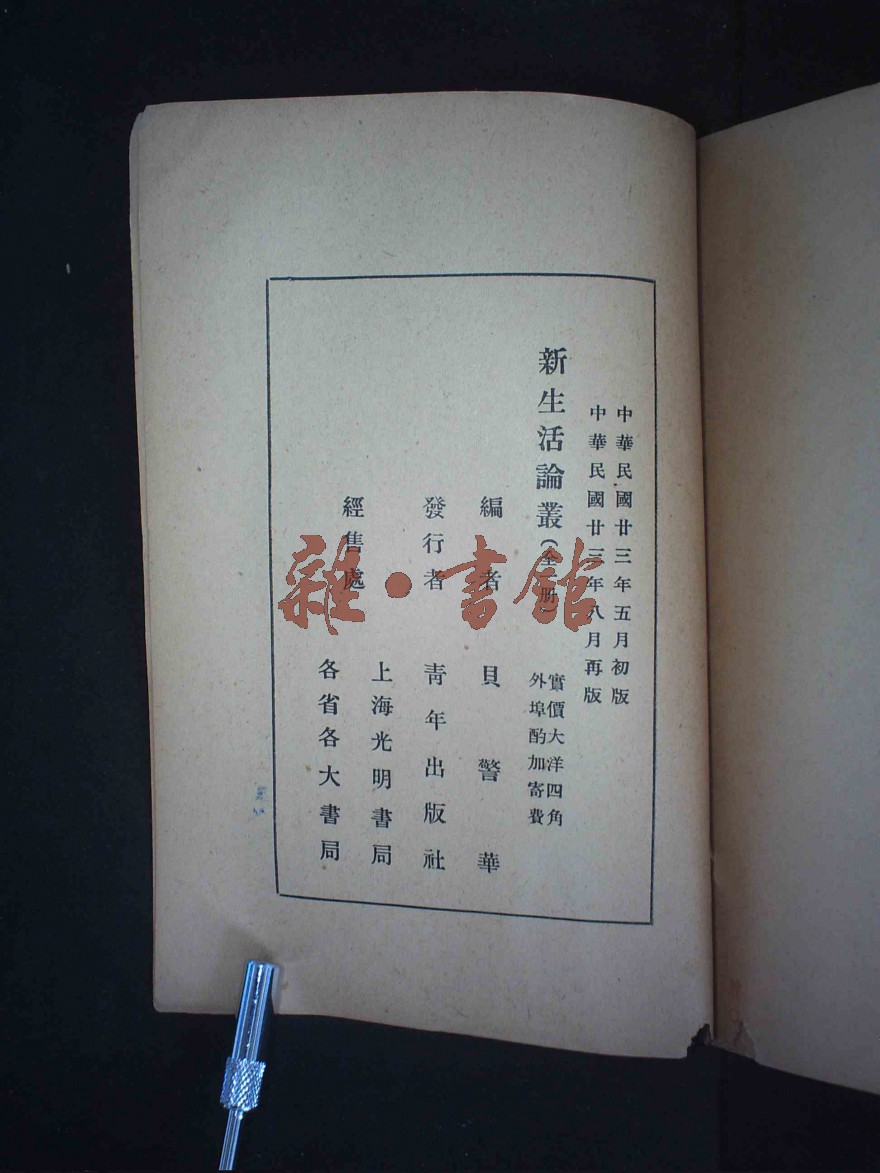 中華民國廿三年五月初版
中華民國廿三年八月再版
新生活論叢(全一册)
實價大洋四角
外埠酌加寄費
編者 貝警華
發行者 青年出版社
經售處 上海光明書局
各省各大書局
雜·書館